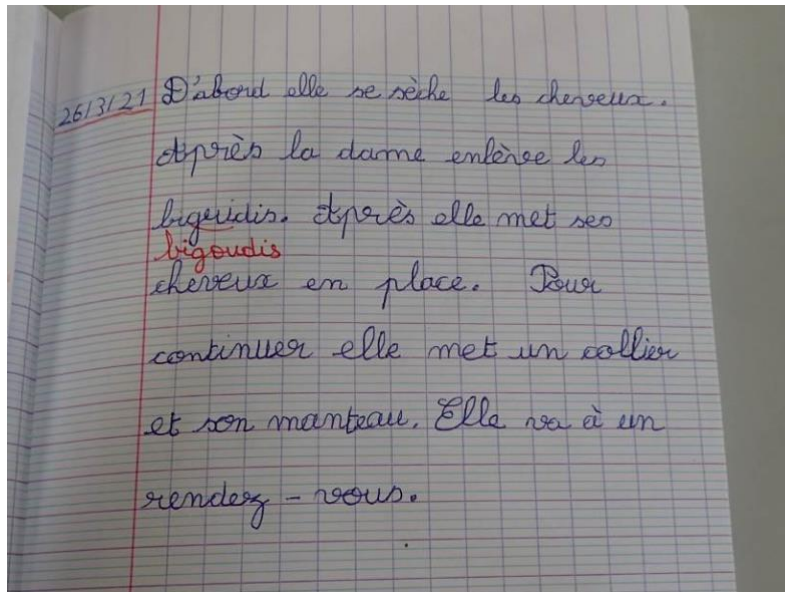 26/3/21 D'abord elle se sèche les cheveux.
Après la dame enlèvee les
biguidis. Après elle met ses
bigoudis
cheveux en place. Pour
continuer elle met un collier
et son manteau. Elle va à un
rendez-vous.